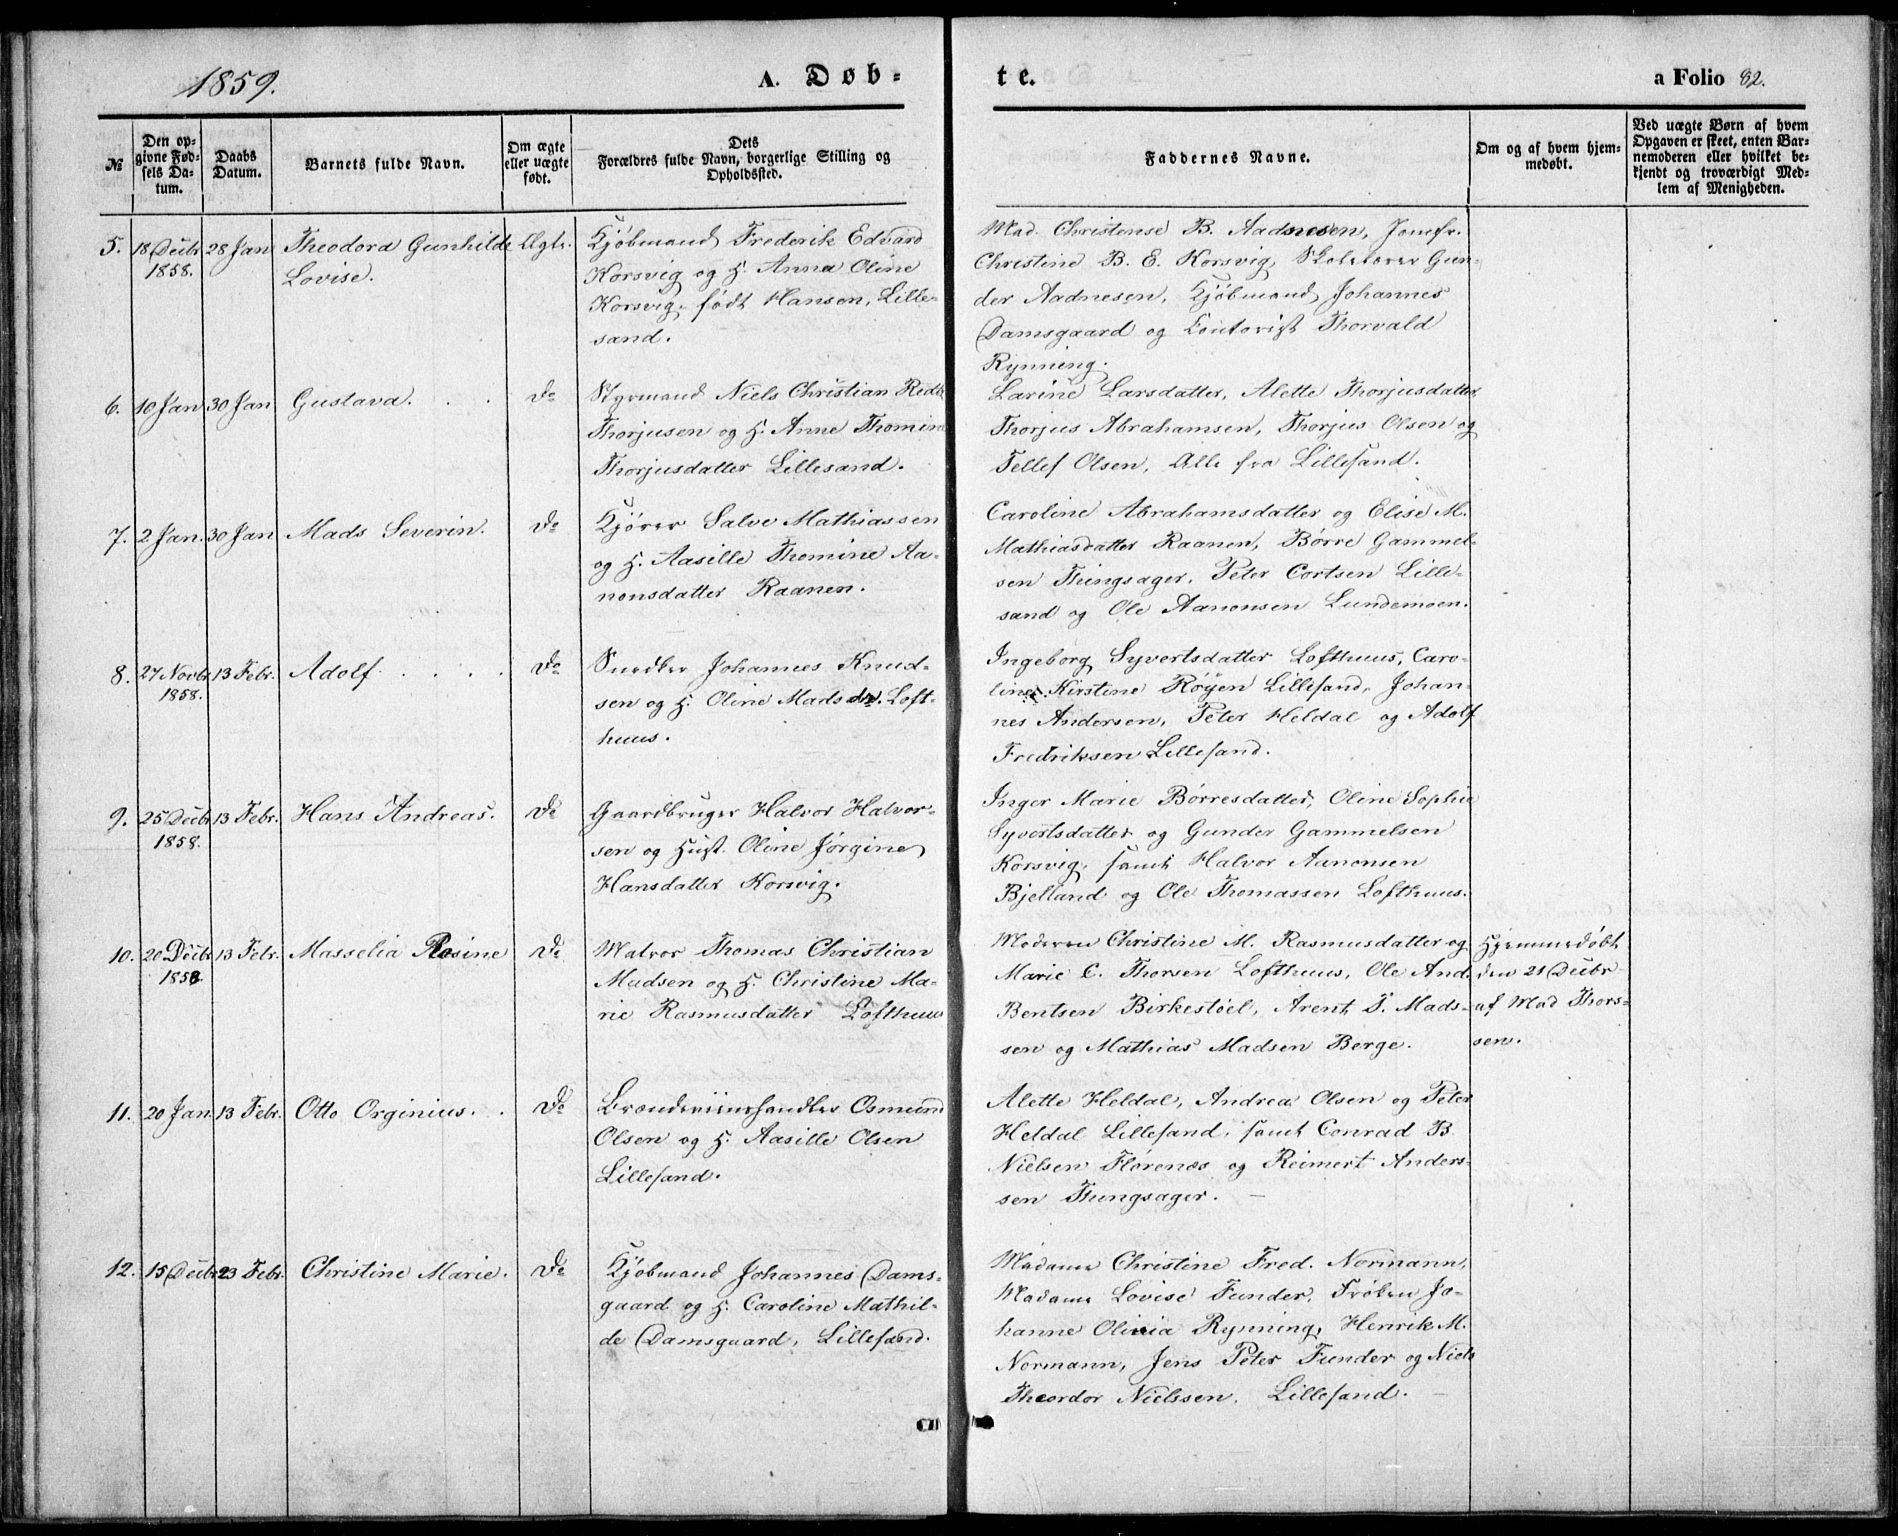 1859.
A. Døb-
te.
a Folio 82.
№
Den op-
givne Fød-
sels Da-
tum.
Daabs
Datum.
Barnets fulde Navn.
Om ægte
eller uægte
født.
Dets
Forældres fulde Navn, borgerlige Stilling og
Opholdssted.
Faddernes Navne.
Om og af hvem hjem-
medøbt.
Ved uægte Børn af hvem
Opgaven er skeet, enten Bar-
nemoderen eller hvilket be-
kjendt og troværdigt Med-
lem af Menigheden.
5.
18 Decbr
1858.
28 Jan
Theodora Gunhilde
Lovise.
Ægte.
Kjøbmand Frederik Edvard
Korsvig og H. Anna Oline
Korsvig, født Hansen, Lille-
sand.
Mad. Christense B. Aadnesen, Jomfr.
Christine B. E. Korsvig, Skolelærer Gun-
der Aadnesen, Kjøbmand Johannes
Damsgaard og Contorist Thorvald
Rynning.
6.
10 Jan
30 Jan
Gustava. . .
Do
Styrmand Niels Christian
Thorjusen og H. Anne Thomine
Thorjusdatter Lillesand.
Larine Larsdatter, Alette Thorjusdatter,
Thorjus Abrahamsen, Thorjus Olsen og
Tellef Olsen, Alle fra Lillesand.
7.
2 Jan.
30 Jan
Mads Severin.
Do
Kjører Salve Mathiassen
og H. Aasille Thomine Aa-
nonsdatter Raanen.
Caroline Abrahamsdatter og Elise M.
Mathiasdatter Raanen, Børre Gammel-
sen Tingsager, Peter Cortsen Lille-
sand og Ole Aanonsen Lundemoen.
8.
27 Novbr
1858.
13 Febr.
Adolf. . . . .
Do
Snedker Johannes Knud-
sen og H. Oline Mads dr. Loft-
huus.
Ingeborg Syvertsdatter Lofthuus, Caro-
line Kirstine Røyen Lillesand, Johan-
nes Andersen, Peter Heldal og Adolf
Fredriksen Lillesand.
9.
25 Decbr
1858.
13 Febr.
Hans Andreas.
Do
Gaardbruger Halvor Halvor-
sen og Hust. Oline Jørgine
Hansdatter Korsvig.
Inger Marie Børresdatter, Oline Sophie
Syvertsdatter og Gunder Gammelsen
Korsvig, samt Halvor Aanonsen
Bjelland og Ole Thomassen Lofthuus.
10.
20 Decbr
1858
13 Febr.
Masselia Rosine
Do
Matros Thomas Christian
Madsen og H. Christine Ma-
rie Rasmusdatter Lofthuus
Moderen Christine M. Rasmusdatter og
Marie C. Thorsen Lofthuus, Ole And.
Bentsen Birkestøel, Arent T. Mads-
sen og Mathias Madsen Berge.
Hjemmedøbt
den 21 Decbr
af Mad Thors-
sen.
11.
20 Jan
13 Febr.
Otto Orginius. .
Do
Brændeviinshandler Osmund
Olsen og H. Aasille Olsen
Lillesand.
Alette Heldal, Andrea Olsen og Peter
Heldal Lillesand, samt Conrad B
Nielsen Flørenæs og Reimert Anders-
sen Tingsager. –
12.
15 Decbr
23 Febr.
Christine Marie.
Do
Kjøbmand Johannes Dams-
gaard og H. Caroline Mathil-
de Damsgaard, Lillesand.
Madame Christine Fred. Normann,
Madame Lovise Funder, Frøken Jo-
hanne Olivia Rynning, Henrik M.
Normann, Jens Peter Funder og Niels
Theordor Nielssen, Lillesand. –